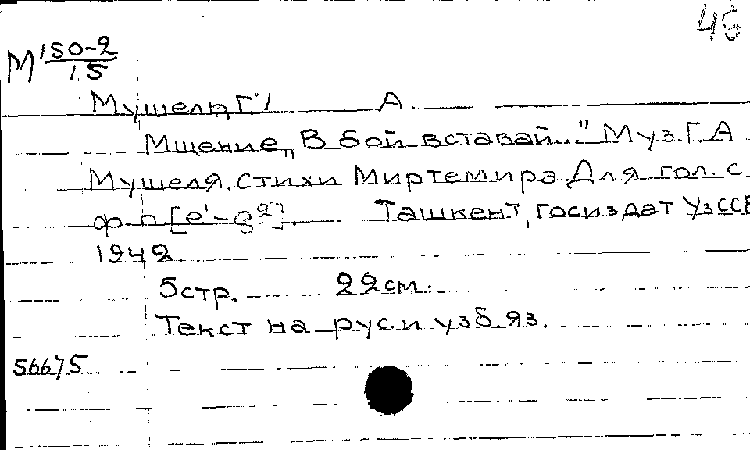 46
М 150-2
15
Мушель, Г. А.
Мщение „В бой вставай..." Муз. Г. А
Мушеля, стихи Миртемира Для гол. с
ф-п [e'-g²]. Ташкент, Госиздат УзССР
1942
5стр. 22см.
Текст на рус и узб. яз.
56675